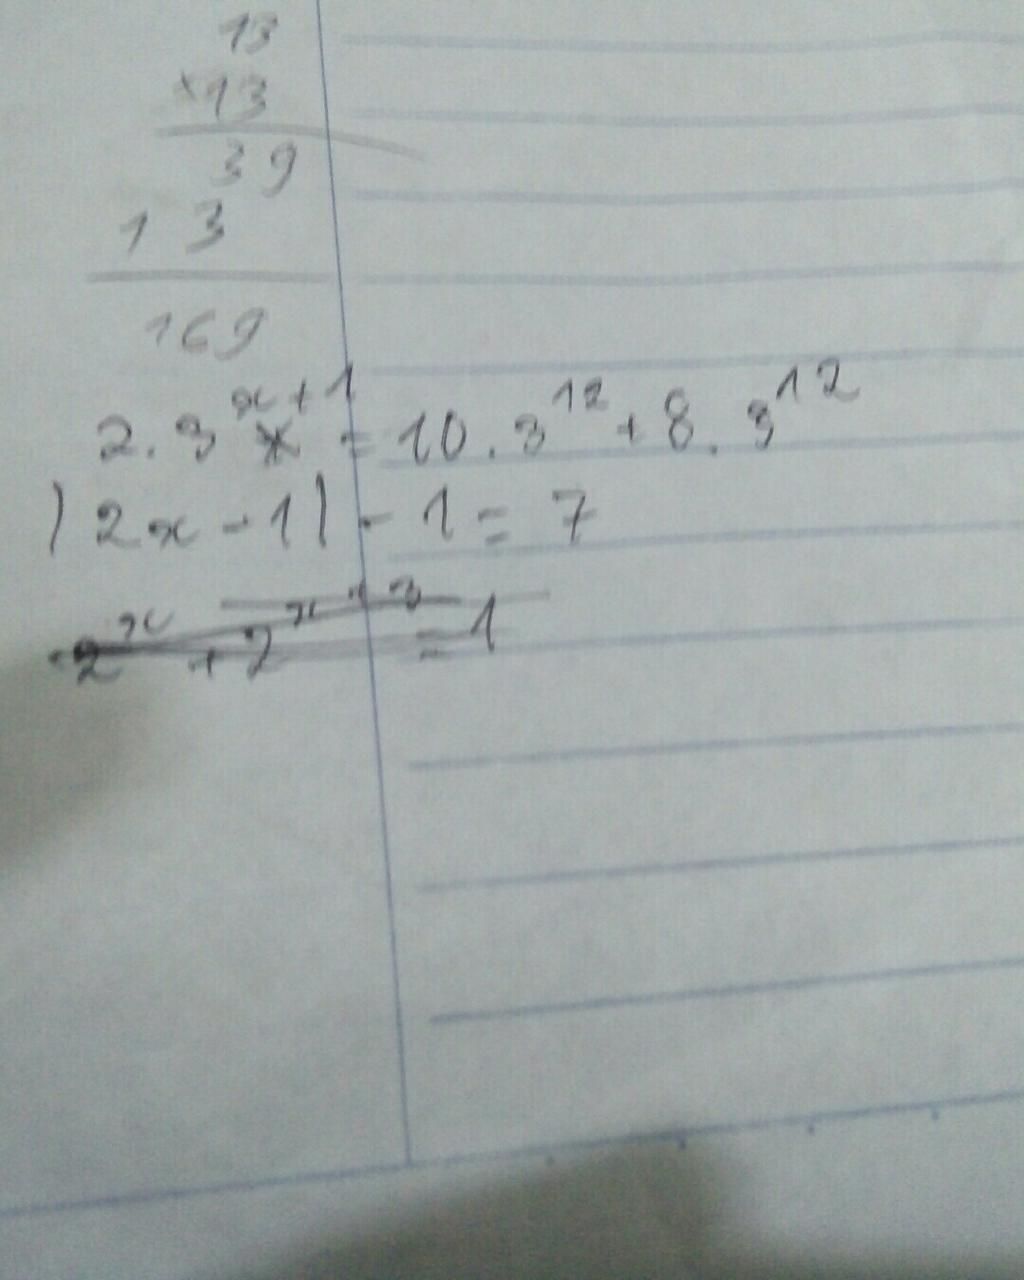 13
×13
39
13
169
2.3^x+1 = 10.3^12 + 8.3^12
|2x - 1| - 1 = 7
2^x + 2^x+3 = 1